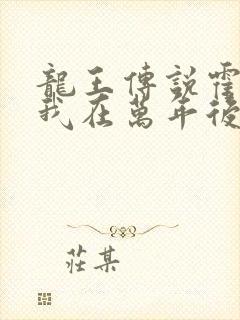 龍王傳說霍
我在萬年後
莊某